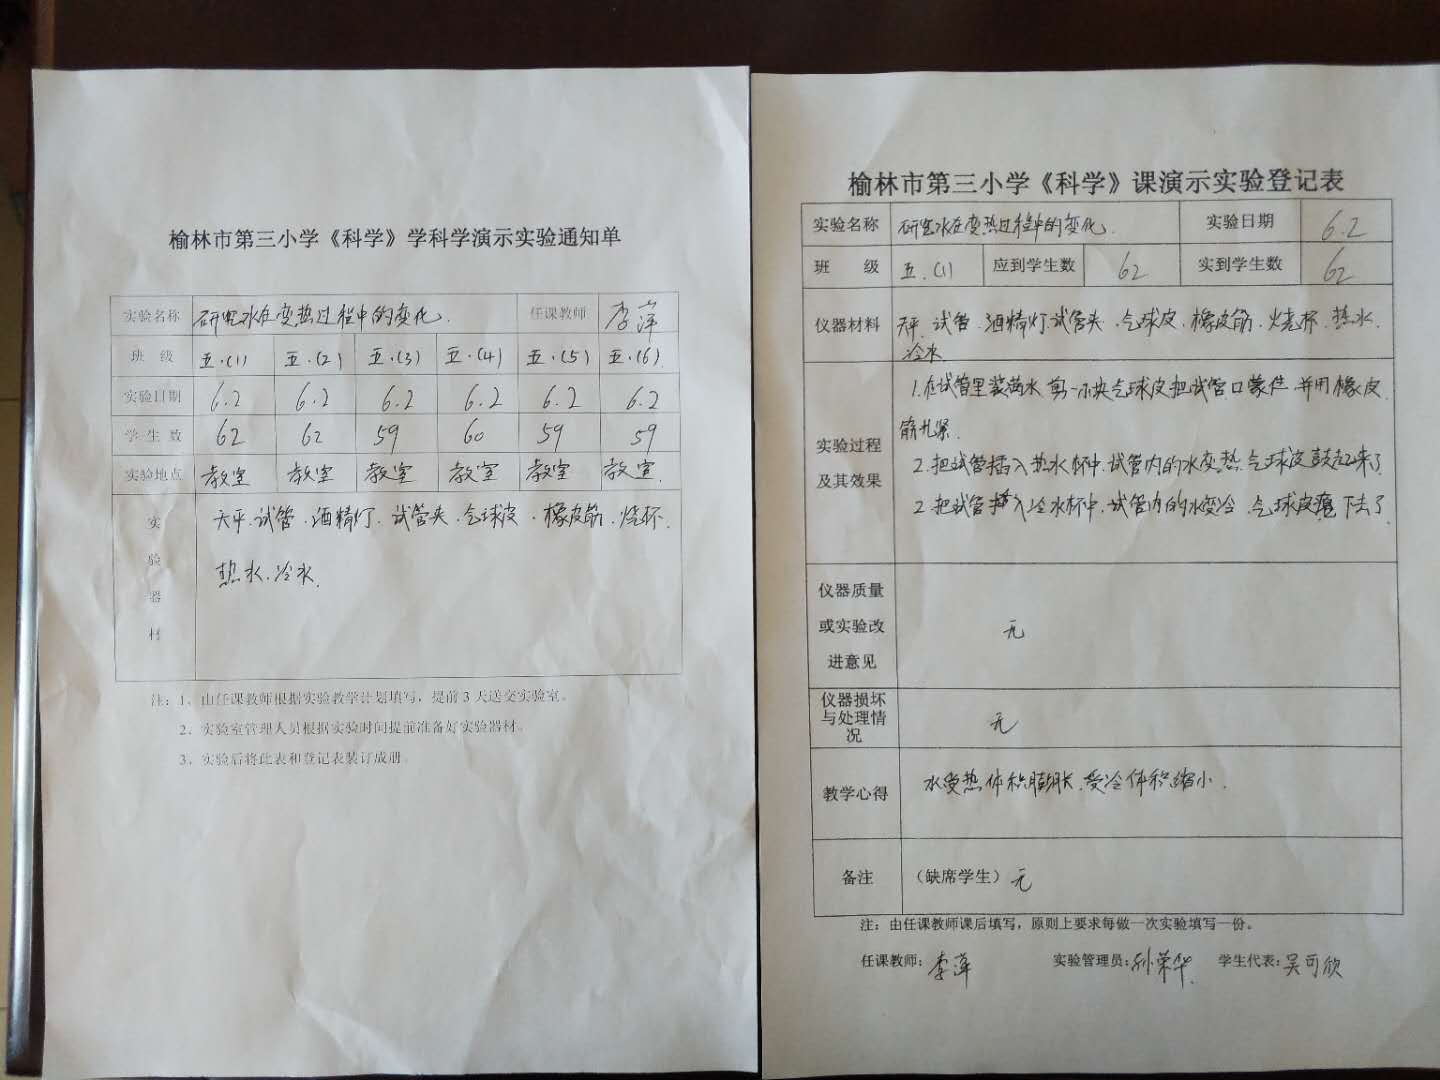 榆林市第三小学《科学》学科学演示实验通知单
实验名称 研究水在变热过程中的变化. 任课教师 李萍
班 级 五.(1) 五.(2) 五.(3) 五.(4) 五.(5) 五.(6)
实验日期 6.2 6.2 6.2 6.2 6.2 6.2
学 生 数 62 62 59 60 59 59
实验地点 教室 教室 教室 教室 教室 教室.
实验器材 天平.试管.酒精灯.试管夹.气球皮.橡皮筋.烧杯.
热水.冷水.
注：1、由任课教师根据实验教学计划填写，提前3天送交实验室。
2、实验室管理人员根据实验时间提前准备好实验器材。
3、实验后将此表和登记表装订成册。
榆林市第三小学《科学》课演示实验登记表
实验名称 研究水在变热过程中的变化. 实验日期 6.2
班 级 五.(1) 应到学生数 62 实到学生数 62
仪器材料 天平.试管.酒精灯.试管夹.气球皮.橡皮筋.烧杯.热水.
冷水
实验过程及其效果
1.在试管里装满水剪一小块气球皮把试管口蒙住.并用橡皮
筋扎紧.
2.把试管插入热水杯中.试管内的水变热.气球皮鼓起来了
2.把试管插入冷水杯中.试管内的水变冷.气球皮瘪下去了
仪器质量或实验改进意见 无
仪器损坏与处理情况 无
教学心得 水受热体积膨胀.受冷体积缩小.
备注 （缺席学生）无
注：由任课教师课后填写，原则上要求每做一次实验填写一份。
任课教师：李萍 实验管理员：孙荣华 学生代表：吴可欣